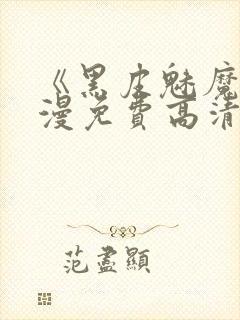 《黑皮魅魔
漫免費高清
范盡顯